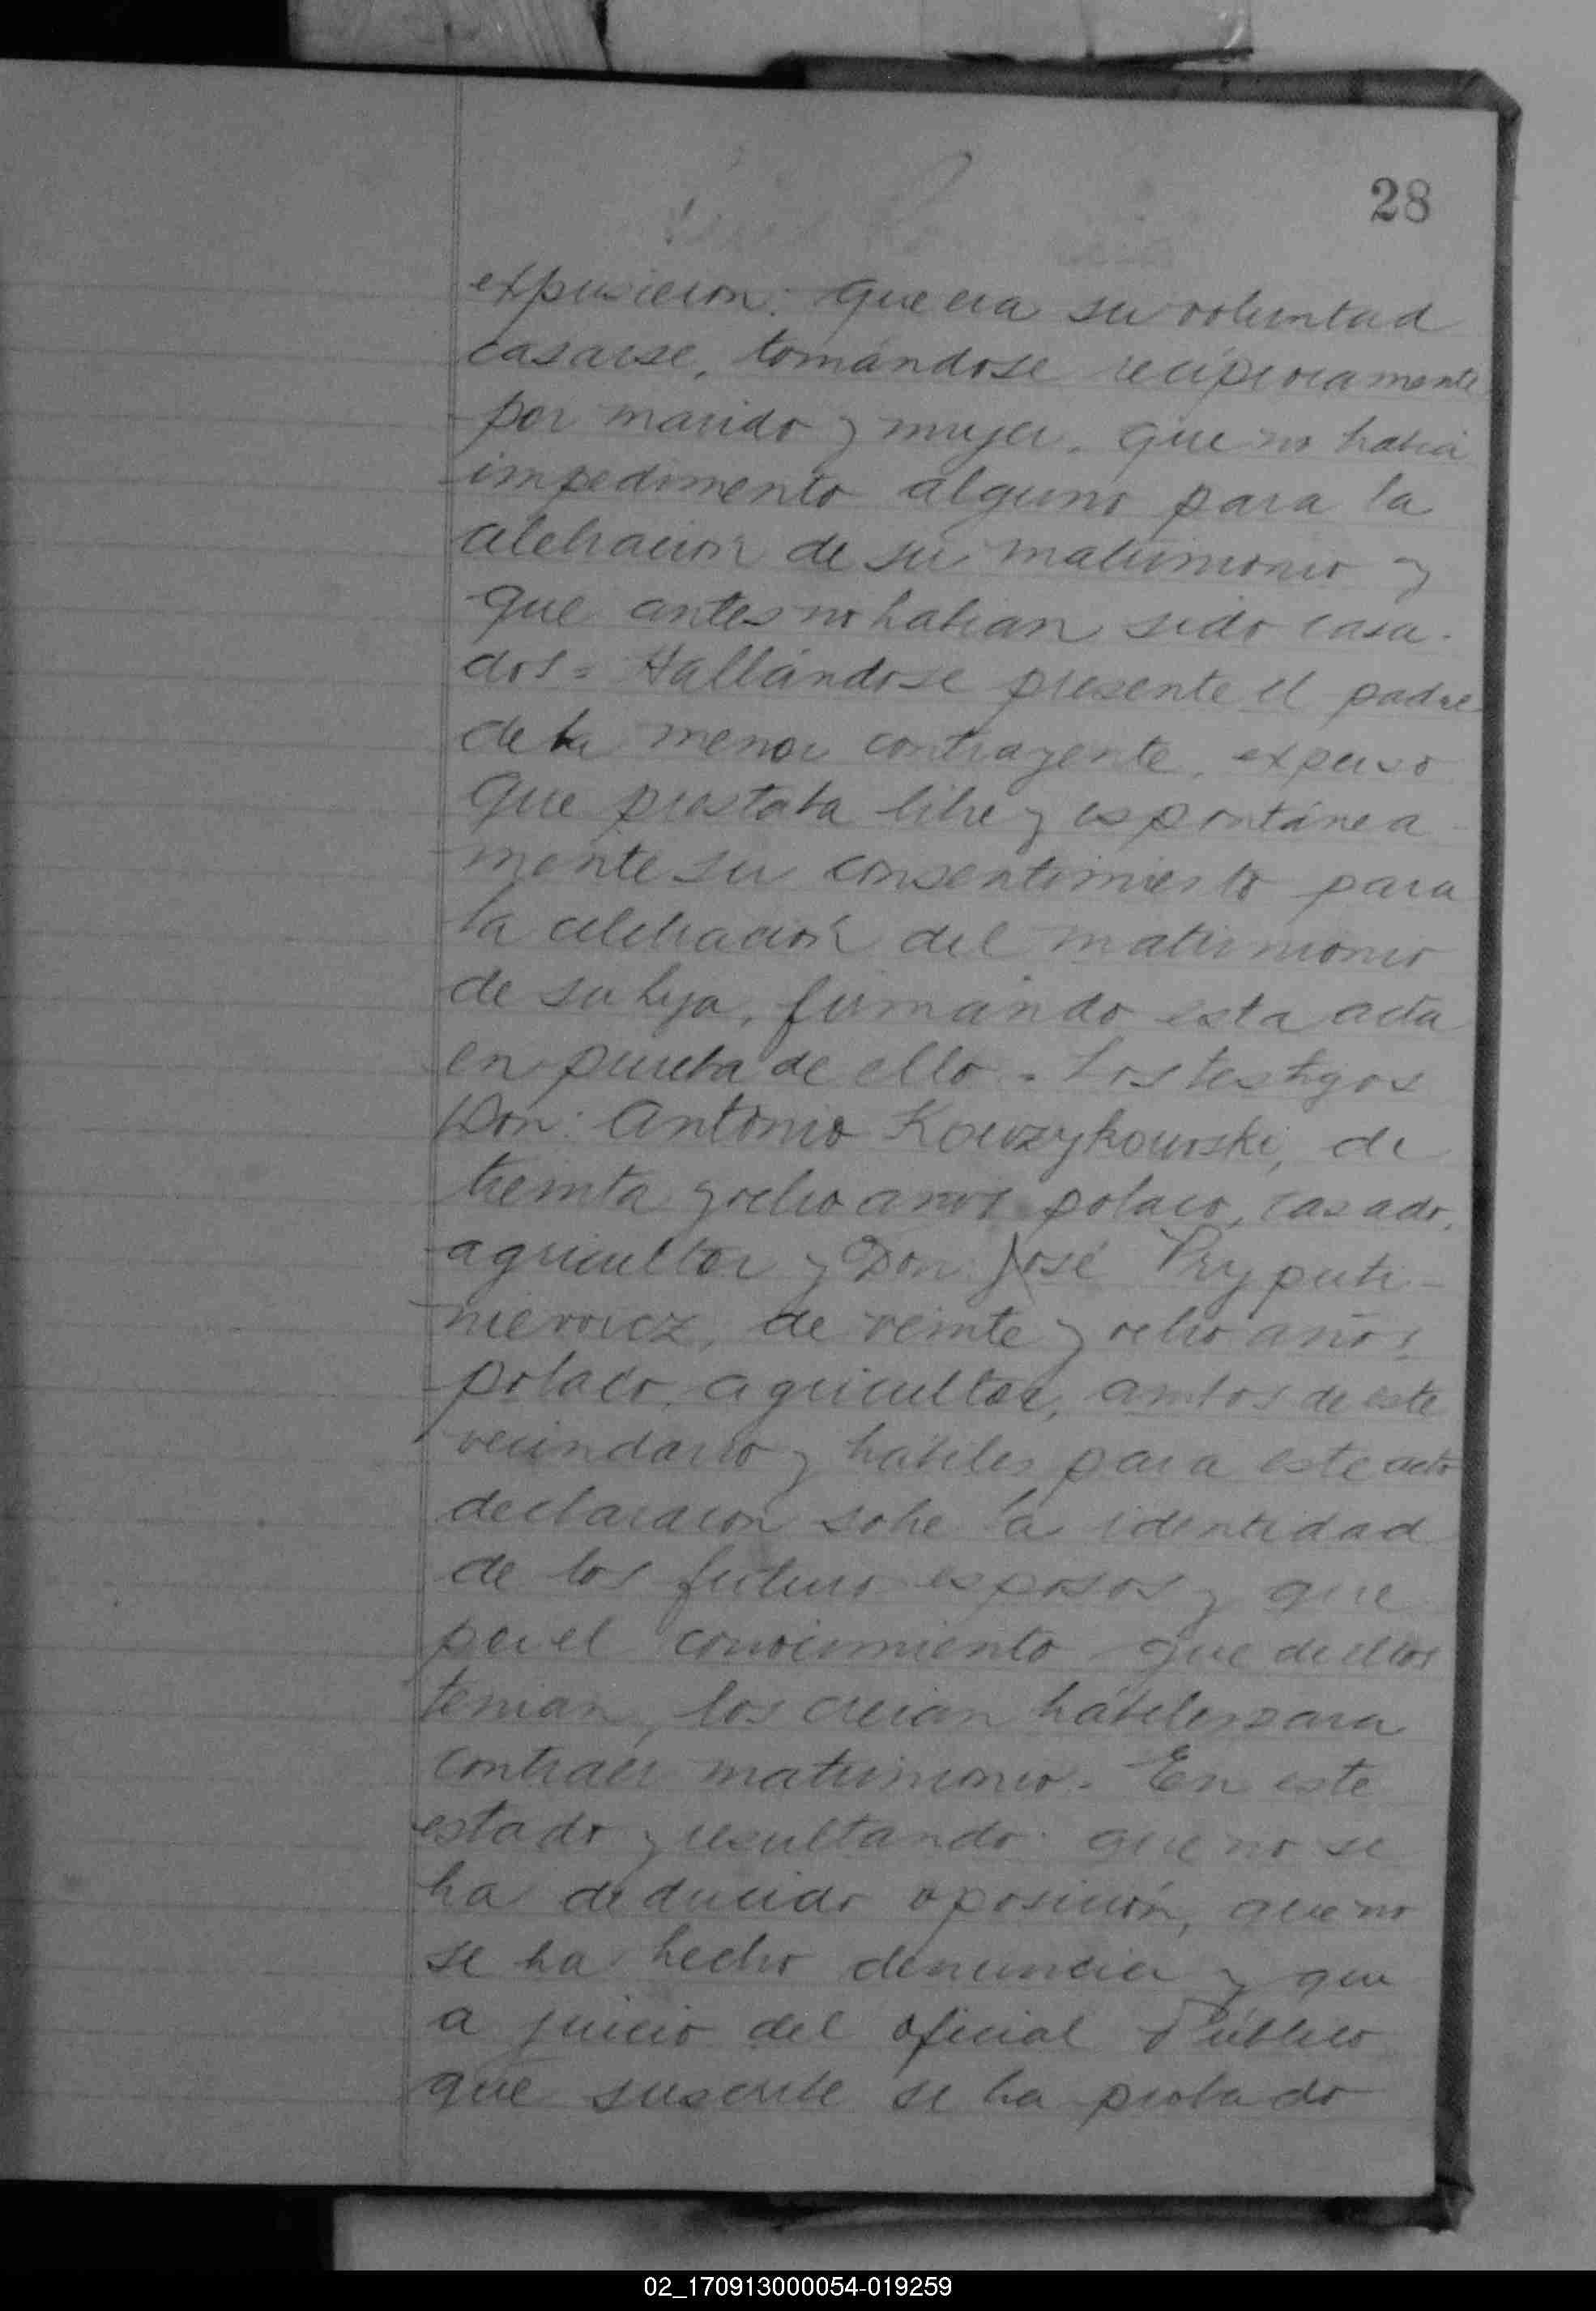 28
expusieron: que era su voluntad
casarse, tomándose recíprocamente
por marido y mujer. que no había
impedimento alguno para la
celebración de su matrimonio y
que antes no habían sido casa-
dos = Hallándose presente el padre
de la menor contrayente, expuso
que prestaba libre y espontánea
mente su consentimiento para
la celebración del matrimonio
de su hija, firmando esta acta
en prueba de ello. Los testigos
Don: Antonio Kowzykowski, de
treinta y ocho años polaco, casado,
agricultor y Don: José Pryputi-
niewicz, de veinte y ocho años,
polaco, agricultor, ambos de este
vecindario y hábiles para este acto
declararon sobre la identidad
de los futuros esposos y que
por el conocimiento que de ellos
tenían, los creían hábiles para
contraer matrimonio. En este
estado y resultando: que no se
ha deducido oposición, que no
se ha hecho denuncia y que
a juicio del oficial Público
que suscribe se ha probado
02_170913000054-019259